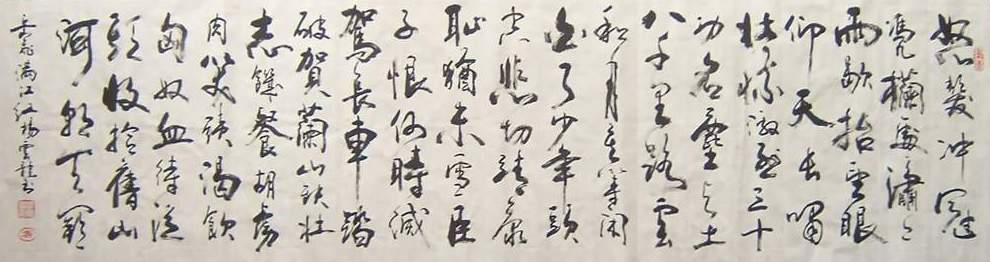 怒髮冲冠
凭欄處瀟〻
雨歇抬望眼
仰天長嘯
壯懷激烈三十
功名塵与土
八千里路雲
和月莫等閑
白了少年頭
空悲切靖康
耻猶未雪臣
子恨何時滅
駕長車踏
破賀蘭山缺壯
志饑餐胡虜
肉笑談渴飲
匈奴血待從
頭收拾舊山
河朝天闕
岳飛滿江紅楊雲龍書